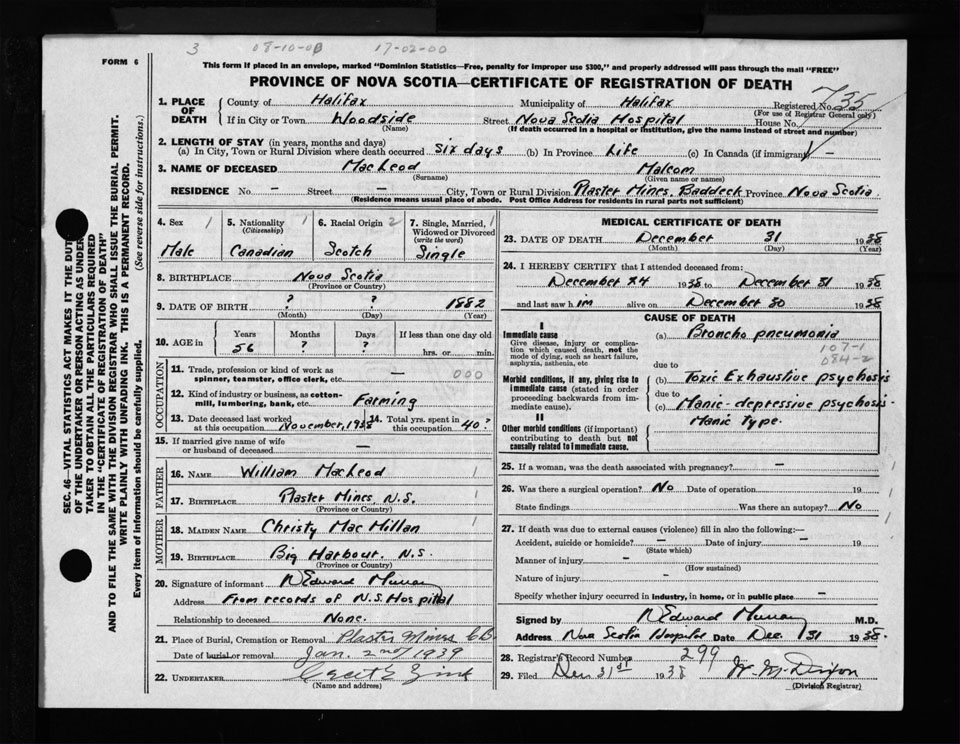 3 08-10-00 17-02-00
FORM 6
This form if placed in an envelope, marked "Dominion Statistics—Free, penalty for improper use $300," and properly addressed will pass through the mail "FREE"
PROVINCE OF NOVA SCOTIA—CERTIFICATE OF REGISTRATION OF DEATH
SEC. 46—VITAL STATISTICS ACT MAKES IT THE DUTY
OF THE UNDERTAKER OR PERSON ACTING AS UNDER-
TAKER TO OBTAIN ALL THE PARTICULARS REQUIRED
IN THE "CERTIFICATE OF REGISTRATION OF DEATH"
AND TO FILE THE SAME WITH THE DIVISION REGISTRAR WHO SHALL ISSUE THE BURIAL PERMIT.
WRITE PLAINLY WITH UNFADING INK. THIS IS A PERMANENT RECORD.
Every item of information should be carefully supplied. (See reverse side for instructions.)
1. PLACE OF DEATH County of Halifax Municipality of Halifax Registered No. 735
(For use of Registrar General only)
If in City or Town Woodside Street Nova Scotia Hospital House No.
(Name) (If death occurred in a hospital or institution, give the name instead of street and number)
2. LENGTH OF STAY (in years, months and days)
(a) In City, Town or Rural Division where death occurred six days (b) In Province Life (c) In Canada (if immigrant) —
3. NAME OF DECEASED MacLeod Malcom
(Surname) (Given name or names)
RESIDENCE No. — Street — City, Town or Rural Division Plaster Mines, Baddeck Province Nova Scotia
(Residence means usual place of abode. Post Office Address for residents in rural parts not sufficient)
4. Sex 1 5. Nationality 1 6. Racial Origin 2 7. Single, Married, 1
(Citizenship) Widowed or Divorced
(write the word)
Male Canadian Scotch Single
8. BIRTHPLACE Nova Scotia
(Province or Country)
9. DATE OF BIRTH ? ? 1882
(Month) (Day) (Year)
10. AGE in Years Months Days If less than one day old
56 ? ? hrs. or min.
OCCUPATION
11. Trade, profession or kind of work as
spinner, teamster, office clerk, etc. — 000
12. Kind of industry or business, as cotton-
mill, lumbering, bank, etc. Farming
13. Date deceased last worked 14. Total yrs. spent in
at this occupation November, 1938 this occupation 40?
15. If married give name of wife
or husband of deceased —
FATHER
16. NAME William MacLeod 1
17. BIRTHPLACE Plaster Mines N.S. 1
(Province or Country)
MOTHER
18. MAIDEN NAME Christy MacMillan
19. BIRTHPLACE Big Harbour. N.S.
(Province or Country)
20. Signature of informant Edward Murray
Address From records of N.S. Hospital
Relationship to deceased None.
21. Place of Burial, Cremation or Removal Plaster Mines C.B.
Date of burial or removal Jan. 2nd 1939
22. UNDERTAKER Cecil E Zink
(Name and address)
MEDICAL CERTIFICATE OF DEATH
23. DATE OF DEATH December 31 1938
(Month) (Day) (Year)
24. I HEREBY CERTIFY that I attended deceased from:
December 24 1938 to December 31 1938
and last saw h im alive on December 30 1938
CAUSE OF DEATH
I
Immediate cause
Give disease, injury or complica-
tion which caused death, not the
mode of dying, such as heart failure,
asphyxia, asthenia, etc
(a) Broncho pneumonia
107-1
084-2
due to
Morbid conditions, if any, giving rise to
immediate cause (stated in order
proceeding backwards from im-
mediate cause).
(b) Toxic Exhaustive psychosis
due to
(c) Manic-depressive psychosis-
Manic type.
II
Other morbid conditions (if important)
contributing to death but not
causally related to immediate cause.
25. If a woman, was the death associated with pregnancy? —
26. Was there a surgical operation? No Date of operation 19
State findings Was there an autopsy? No
27. If death was due to external causes (violence) fill in also the following:—
Accident, suicide or homicide? — Date of injury — 19
(State which)
Manner of injury —
(How sustained)
Nature of injury —
Specify whether injury occurred in industry, in home, or in public place —
Signed by Edward Murray M.D.
Address Nova Scotia Hospital Date Dec. 31 1938.
28. Registrar's Record Number 299
29. Filed Dec 31st 1938 W. M. Dixon
(Division Registrar)